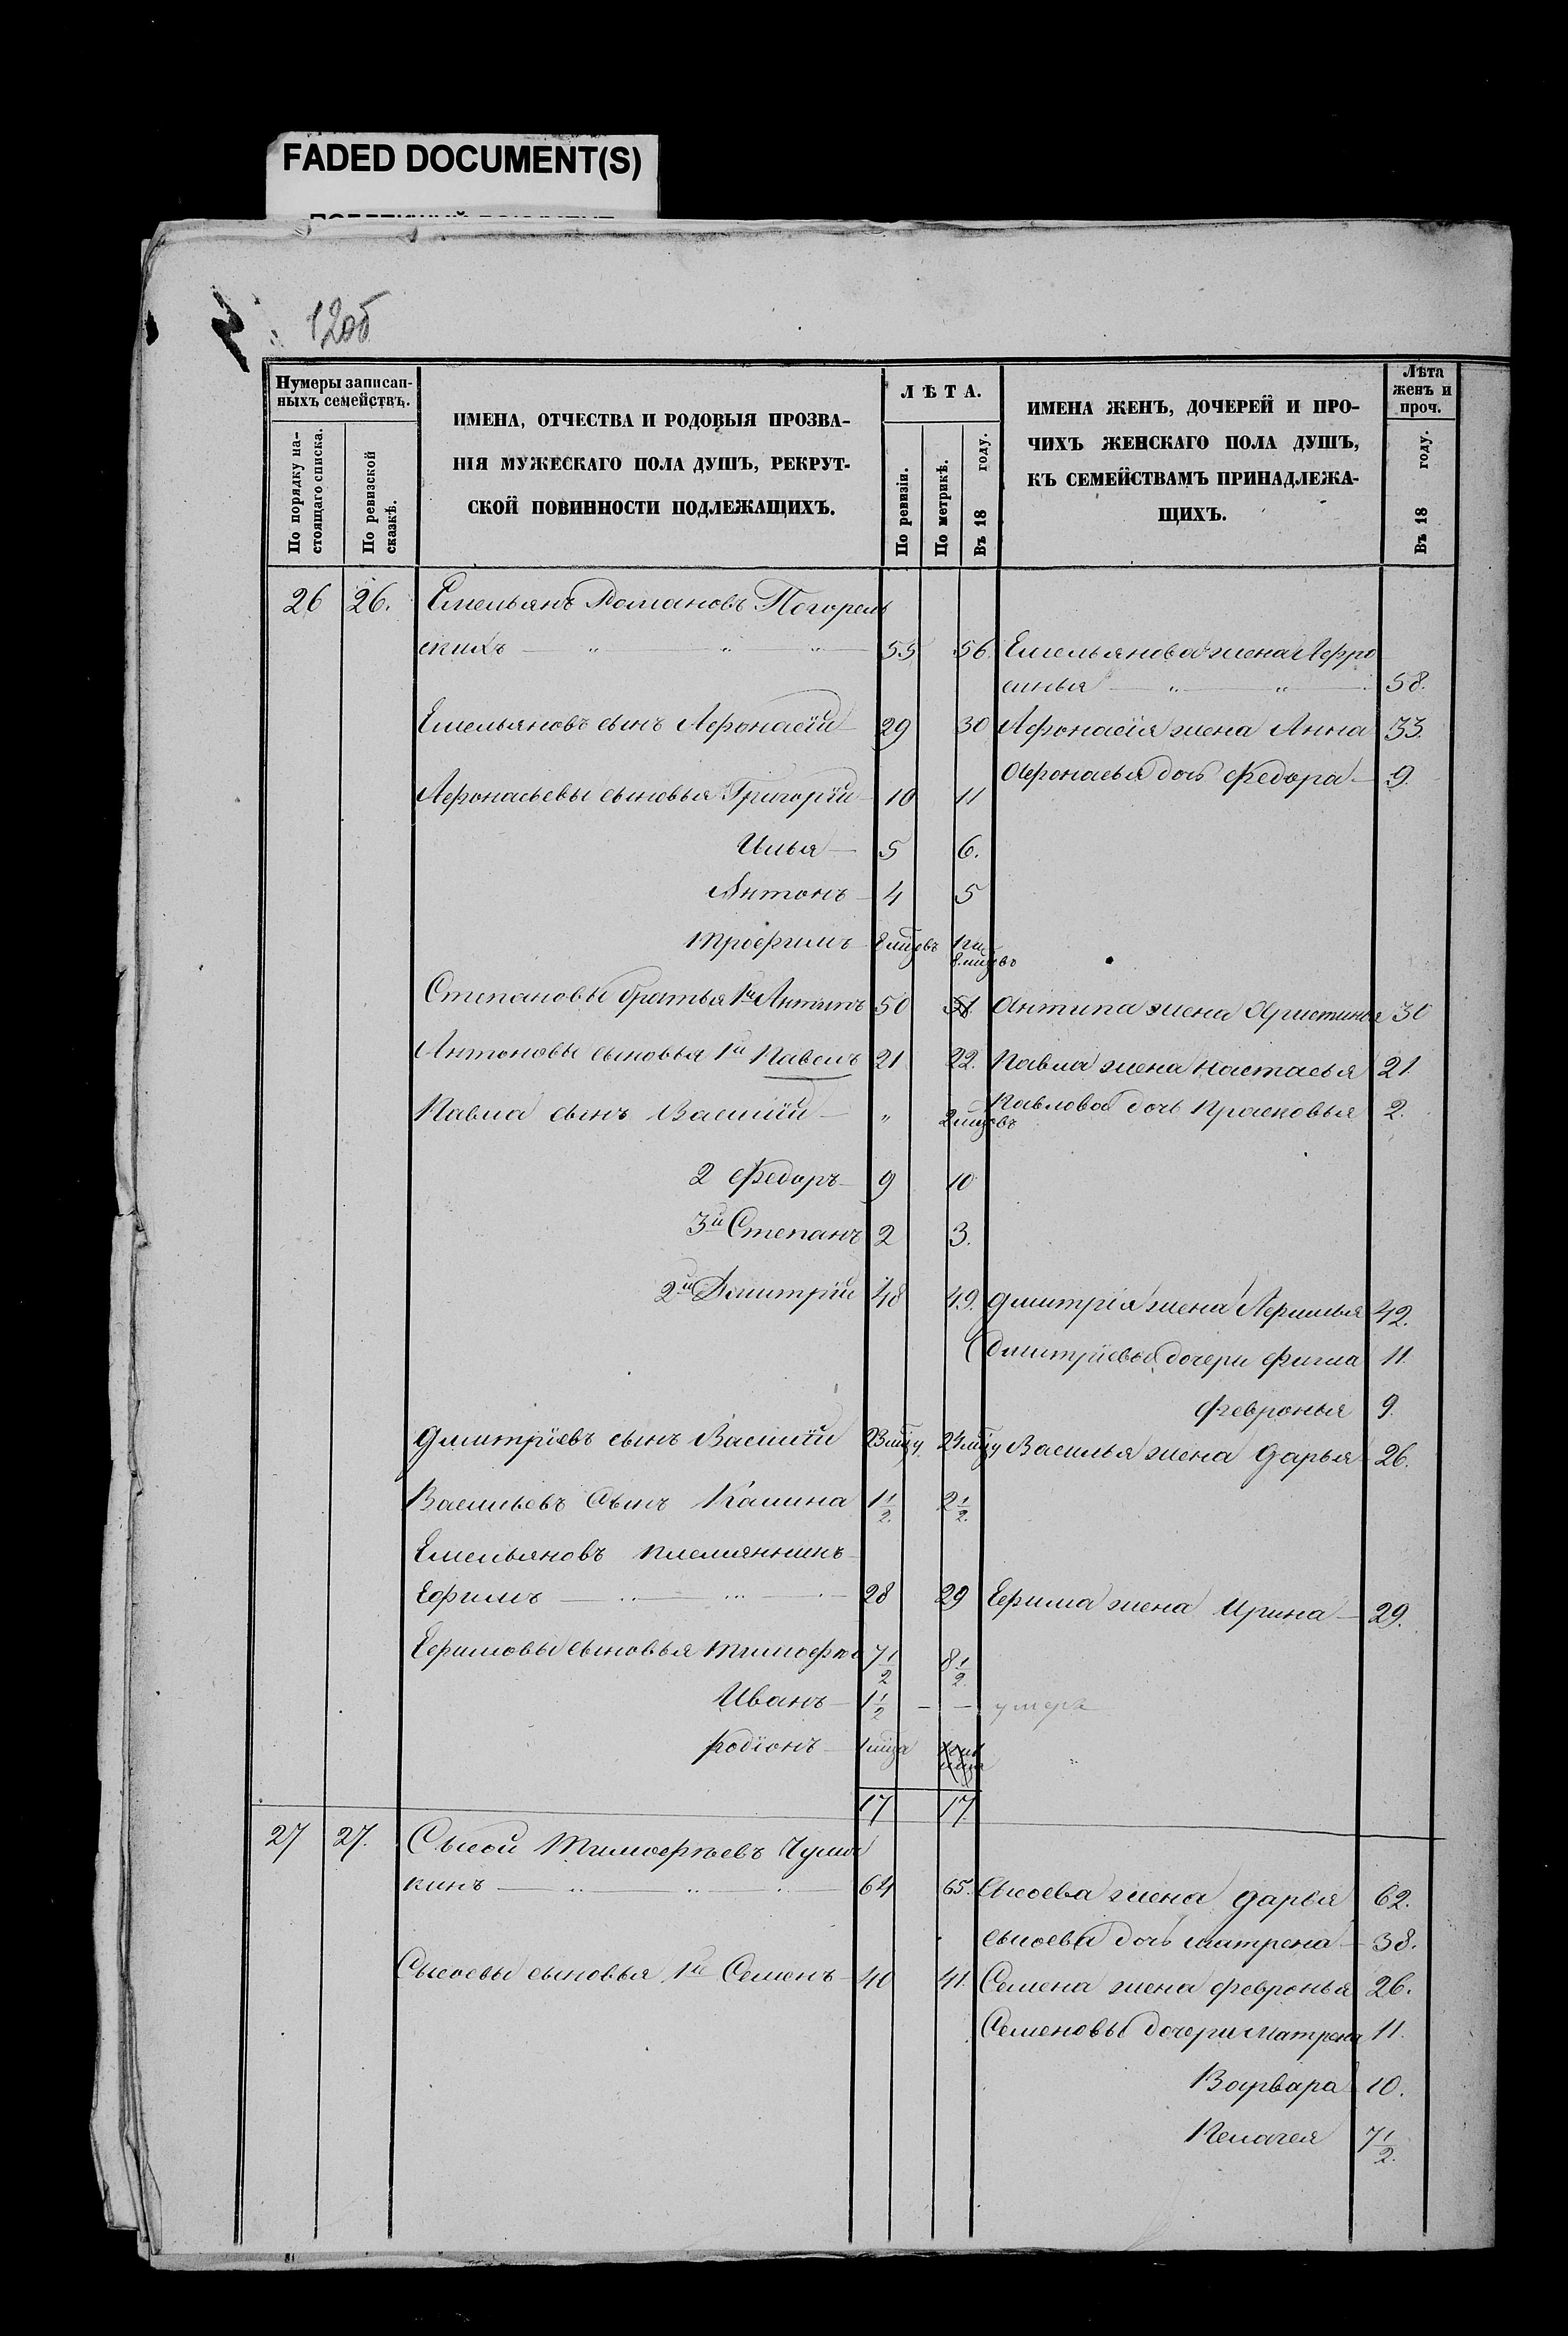 FADED DOCUMENT(S)
12об
Нумеры записан-
ныхъ семействъ.
По порядку на-
стоящаго списка.
По ревизской
сказкѣ.
ИМЕНА, ОТЧЕСТВА И РОДОВЫЯ ПРОЗВА-
НІЯ МУЖЕСКАГО ПОЛА ДУШЪ, РЕКРУТ-
СКОЙ ПОВИННОСТИ ПОДЛЕЖАЩИХЪ.
ЛѢТА.
По ревизіи.
По метрикѣ.
Въ 18 году.
ИМЕНА ЖЕНЪ, ДОЧЕРЕЙ И ПРО-
ЧИХЪ ЖЕНСКАГО ПОЛА ДУШЪ,
КЪ СЕМЕЙСТВАМЪ ПРИНАДЛЕЖА-
ЩИХЪ.
Лѣта
женъ и
проч.
Въ 18 году.
26 26. Емельянъ Романовъ Погорель
скихъ 55 56. Емельянова жена Афро
синья 58.
Емельяновъ сынъ Афонасій 29 30 Афонасія жена Анна 33.
Афонасья дочь Федора 9.
Афонасьевы сыновья Григорій 10 11
Илья 5 6.
Антонъ 4 5
Трофимъ 8 мцовъ 1 го
8 мцовъ
Степановы братья 1й Антипъ 50 51. Антипа жена Христинья 30
Антоновы сыновья 1й Павелъ 21 22. Павла жена Настасья 21.
Павла сынъ Василій " 2 мцовъ Павлова дочь Прасковья 2.
2 Федоръ 9 10
3й Степанъ 2 3.
2й Дмитрій 48 49. Дмитрія жена Афимья 42.
Дмитріевы дочери Фигла 11.
Февронья 9.
Дмитріевъ сынъ Василій 23 мцу 24 мцу Василья жена Дарья 26.
Васильевъ Сынъ Калина 1 1/2. 2 1/2.
Емельяновъ племянникъ
Ефимъ 28 29 Ефима жена Ирина 29.
Ефимовы сыновья Тимофей 7 1/2 8 1/2.
Иванъ 1 1/2 — — умеръ
Родіонъ 1 мца
17 17.
27 27. Сысой Тимофѣевъ Чума
кинъ 64 65. Сысоева жена Дарья 62.
Сысоева дочь Матрена 38.
Сысоевы сыновья 1й Семенъ 40 41. Семена жена Февронья 26.
Семеновы дочери Матрена 11.
Варвара 10.
Пелагея 7 1/2.